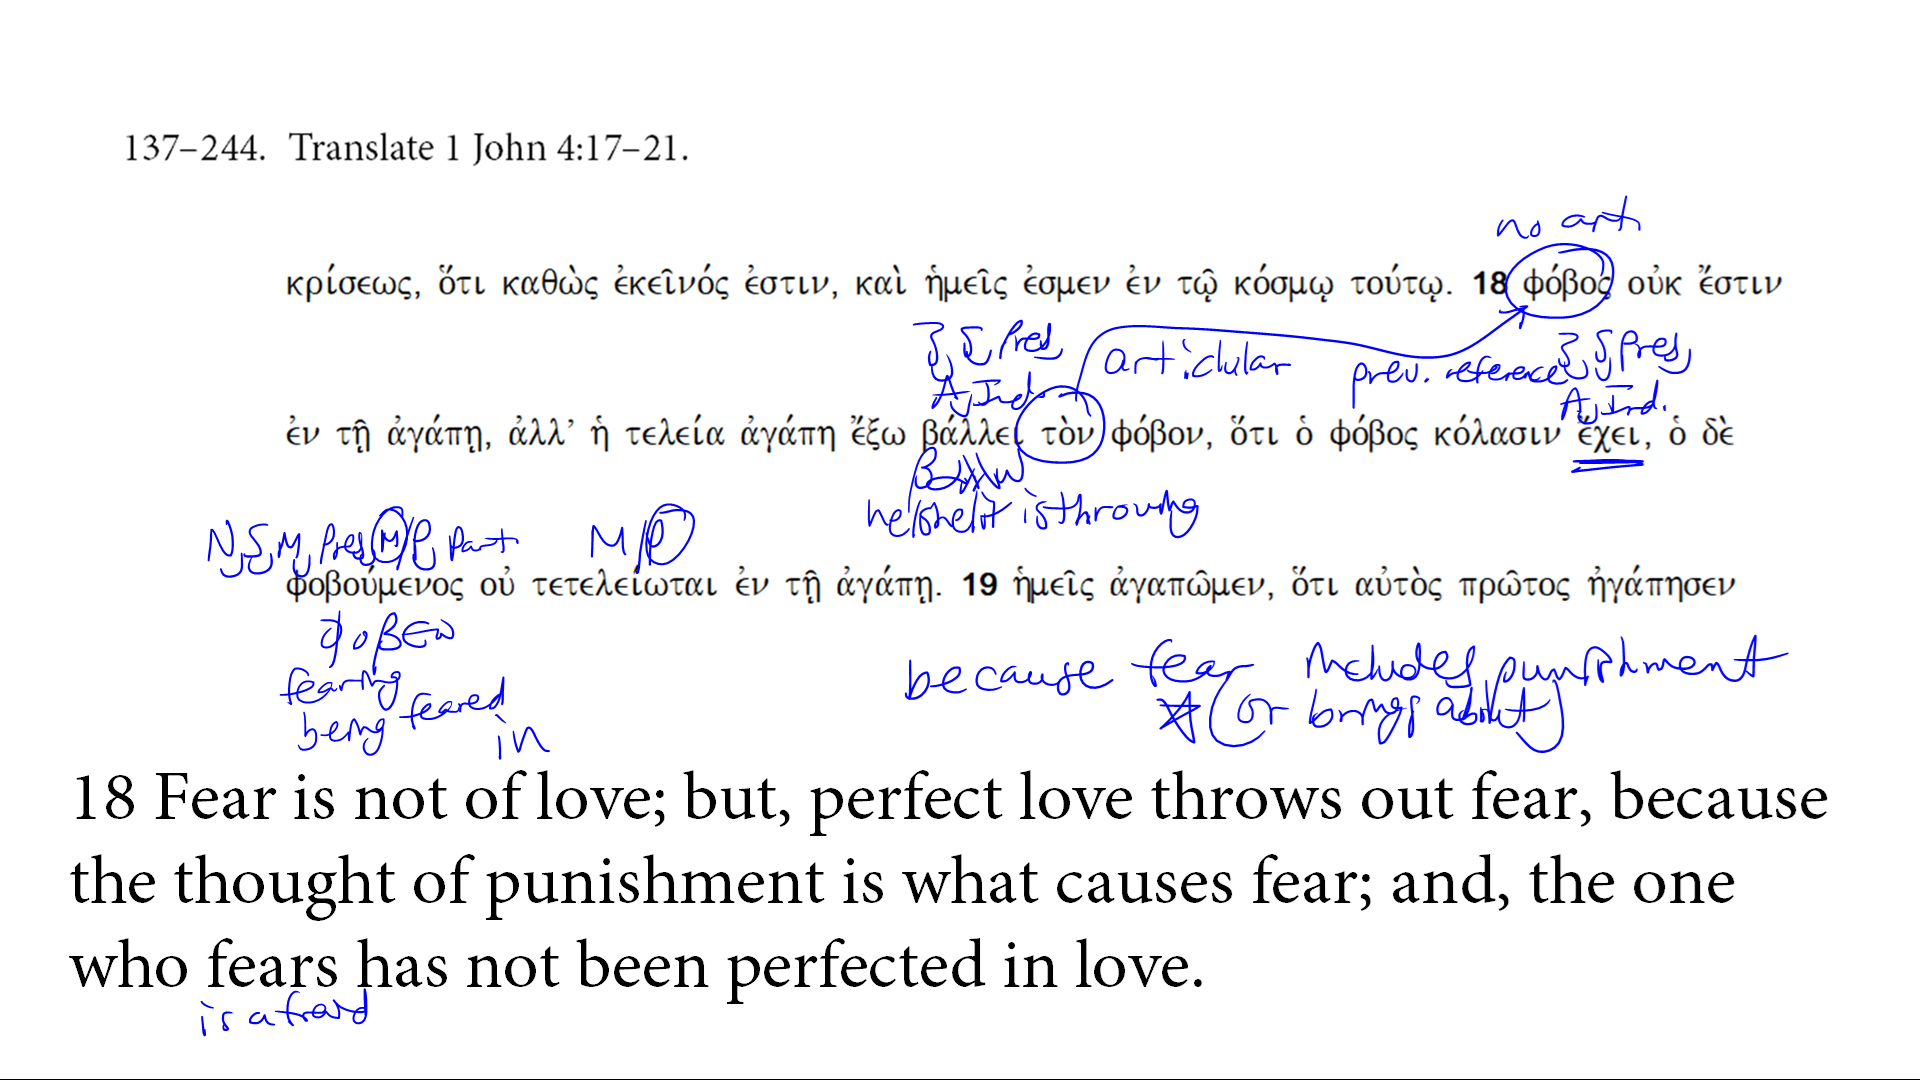 137–244. Translate 1 John 4:17–21.
no art
κρίσεως, ὅτι καθὼς ἐκεῖνός ἐστιν, καὶ ἡμεῖς ἐσμεν ἐν τῷ κόσμῳ τούτῳ. 18 φόβος οὐκ ἔστιν
3, S, Pres, articular prev. reference 3, S, Pres,
A, Ind. A, Ind.
ἐν τῇ ἀγάπῃ, ἀλλ’ ἡ τελεία ἀγάπη ἔξω βάλλει τὸν φόβον, ὅτι ὁ φόβος κόλασιν ἔχει, ὁ δὲ
βαλλω
he/she/it is throwing
N, S, M, Pres, M/P, Part M/P
φοβούμενος οὐ τετελείωται ἐν τῇ ἀγάπῃ. 19 ἡμεῖς ἀγαπῶμεν, ὅτι αὐτὸς πρῶτος ἠγάπησεν
φοβεω
fearing because fear includes punishment
being feared (or brings about)
in
18 Fear is not of love; but, perfect love throws out fear, because
the thought of punishment is what causes fear; and, the one
who fears has not been perfected in love.
is afraid